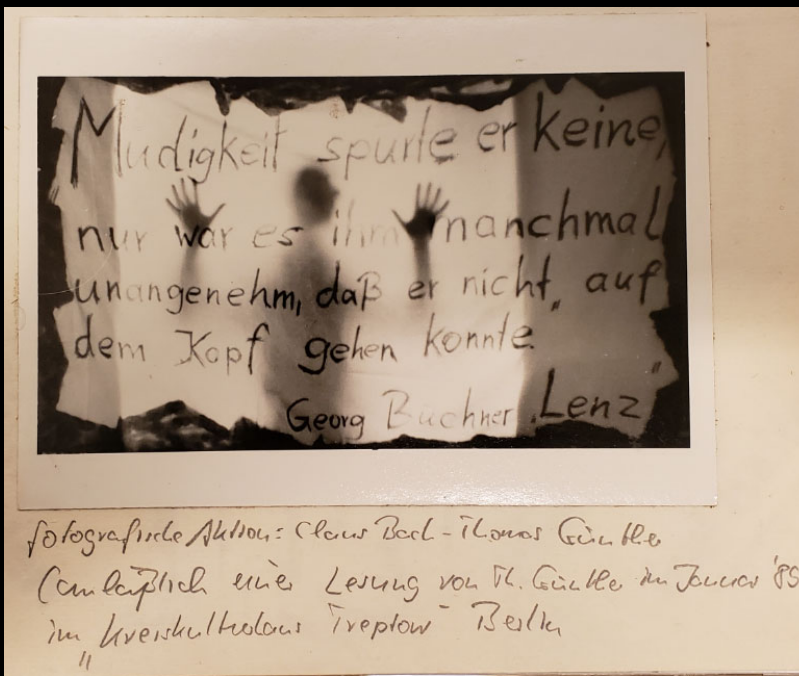 Mudigkeit spurte er keine,
nur war es ihm manchmal
unangenehm, daß er nicht „auf
dem Kopf gehen konnte.
Georg Büchner „Lenz"
fotografische Aktion: Claus Bach - Thomas Günther
(anläßlich einer Lesung von Th. Günther im Januar '89
im „Kreiskulturhaus Treptow" Berlin